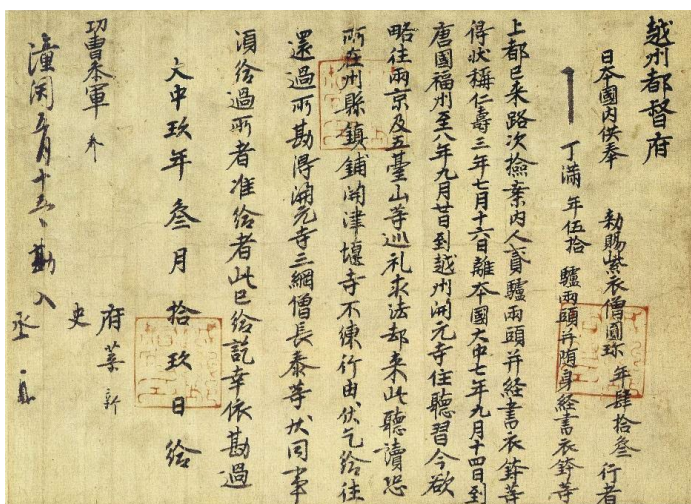 越州都督府
日本國内供奉 勑賜紫衣僧圓珎 年肆拾叁 行者
丁滿 年伍拾 驢兩頭并随身經書衣鉢等
上都已来路次撿案内人貳驢兩頭并經書衣鉢等
得状稱仁壽三年七月十六日離本國大中七年九月十四日到
唐國福州至八年九月廿日到越州開元寺住聽習今欲
略往兩京及五臺山等巡礼求法却来此聽讀恐
所在州縣鎮鋪開津堰寺不練行由伏乞給往
還過所勘得開元寺三綱僧長泰等状同事
須給過所者准給者此已給訖幸依勘過
大中玖年叁月拾玖日給
府葉新
功曹叅軍
史
潼関五月十五日勘入
丞